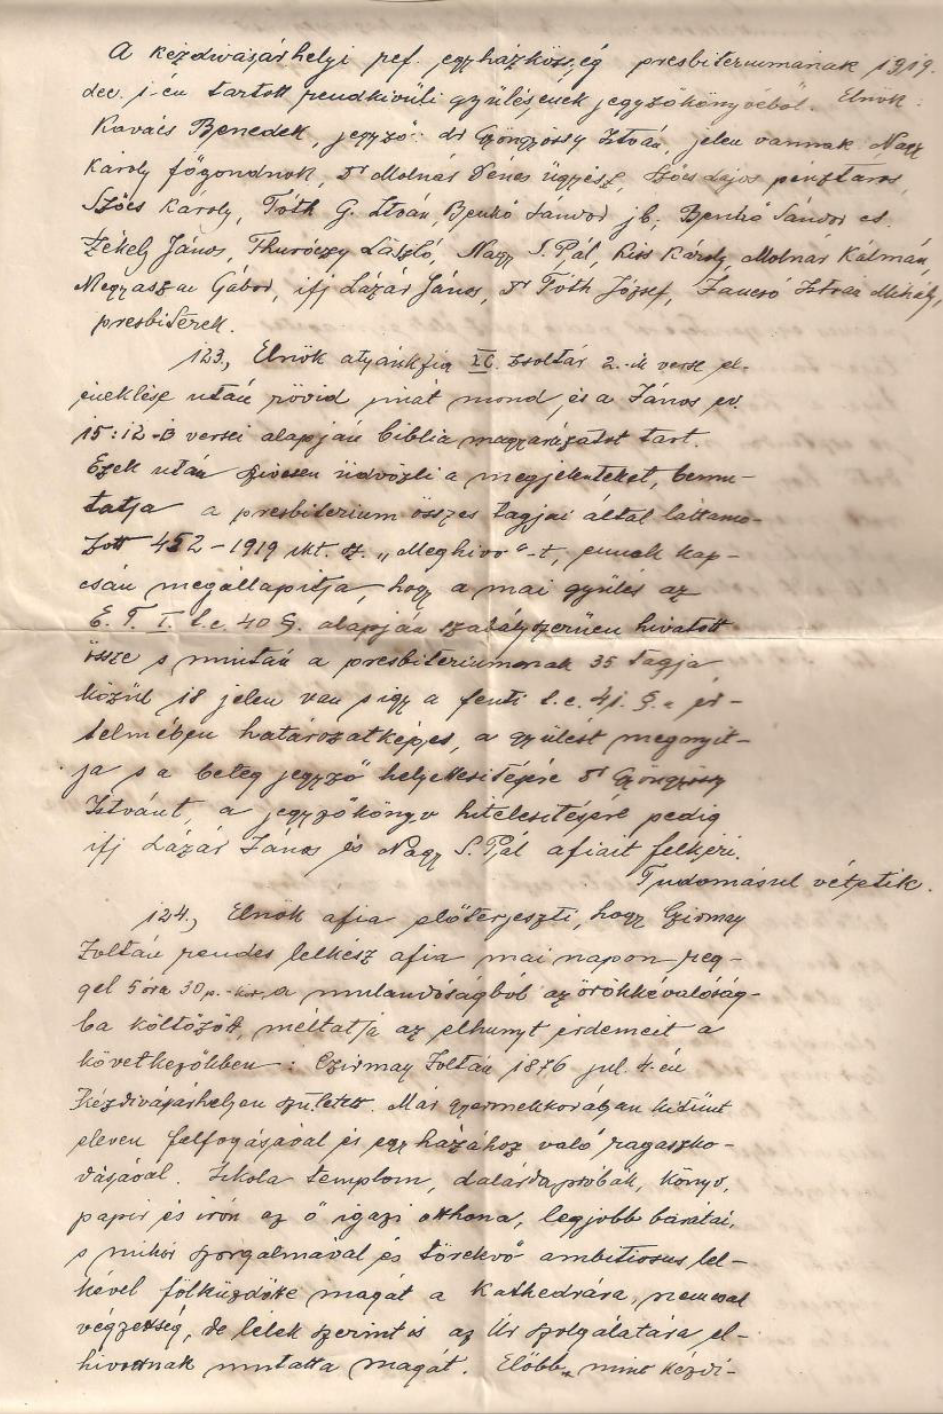 A kézdivásárhelyi ref. egyházközség presbiteriumának 1919.
dec. 1-én tartott rendkivüli gyülésének jegyzőkönyvéből. Elnök:
Kovács Benedek, jegyző: dr Gyöngyössy István, jelen vannak Nagy
Károly főgondnok, Dr Molnár Dénes ügyész, Szőcs Lajos pénztáros,
Szőcs Károly, Tóth G. István, Benkő Sándor jb, Benkő Sándor cs.
Székely János, Thuróczy László, Nagy S. Pál, Kiss Károly, Molnár Kálmán,
Megyaszai Gábor, ifj Lázár János, Dr Tóth József, Jancsó István Mihály,
presbiterek.
123., Elnök atyánkfia IC. zsoltár 2.-ik vers el-
éneklése után rövid imát mond és a János ev.
15:12-13 versei alapján biblia magyarázatot tart.
Ezek után szivesen üdvözli a megjelenteket, bemu-
tatja a presbiterium összes tagjai által láttamo-
zott 452-1919 ikt. sz. „Meghivó"-t, ennek kap-
csán megállapitja, hogy a mai gyülés az
E. T. I. t.c. 40 §. alapján szabályszerüen hivatott
össze s miután a presbiteriumnak 35 tagja
közül 18 jelen van s igy a fenti t.c. 41. §.a ér-
telmében határozatképes, a gyülést megnyit-
ja s a beteg jegyző helyettesitésére Dr Gyöngyössy
Istvánt, a jegyzőkönyv hitelesitésére pedig
ifj Lázár János és Nagy S. Pál afiait felkéri.
Tudomásul vétetik.
124., Elnök afia előterjeszti, hogy Czirmay
Zoltán rendes lelkész afia mai napon reg-
gel 5 óra 30 p.-kor, a mulandóságból az örökkévalóság-
ba költözött, méltatja az elhunyt érdemeit a
következőkben: Czirmay Zoltán 1876 jul. 4-én
Kézdivásárhelyen született. Már gyermekkorában kitünt
eleven felfogásával és egyházához való ragaszko-
dásával. Iskola templom, dalárdapróbák, könyv,
papir és irón az ő igazi otthona, legjobb barátai,
s mikor szorgalmával és törekvő ambitiosus lel-
kével fölküzdötte magát a Kathedrára, nemcsak
végzettség, de lélek szerint is az Úr szolgálatára el-
hivottnak mutatta magát. Előbb, mint kézdi-